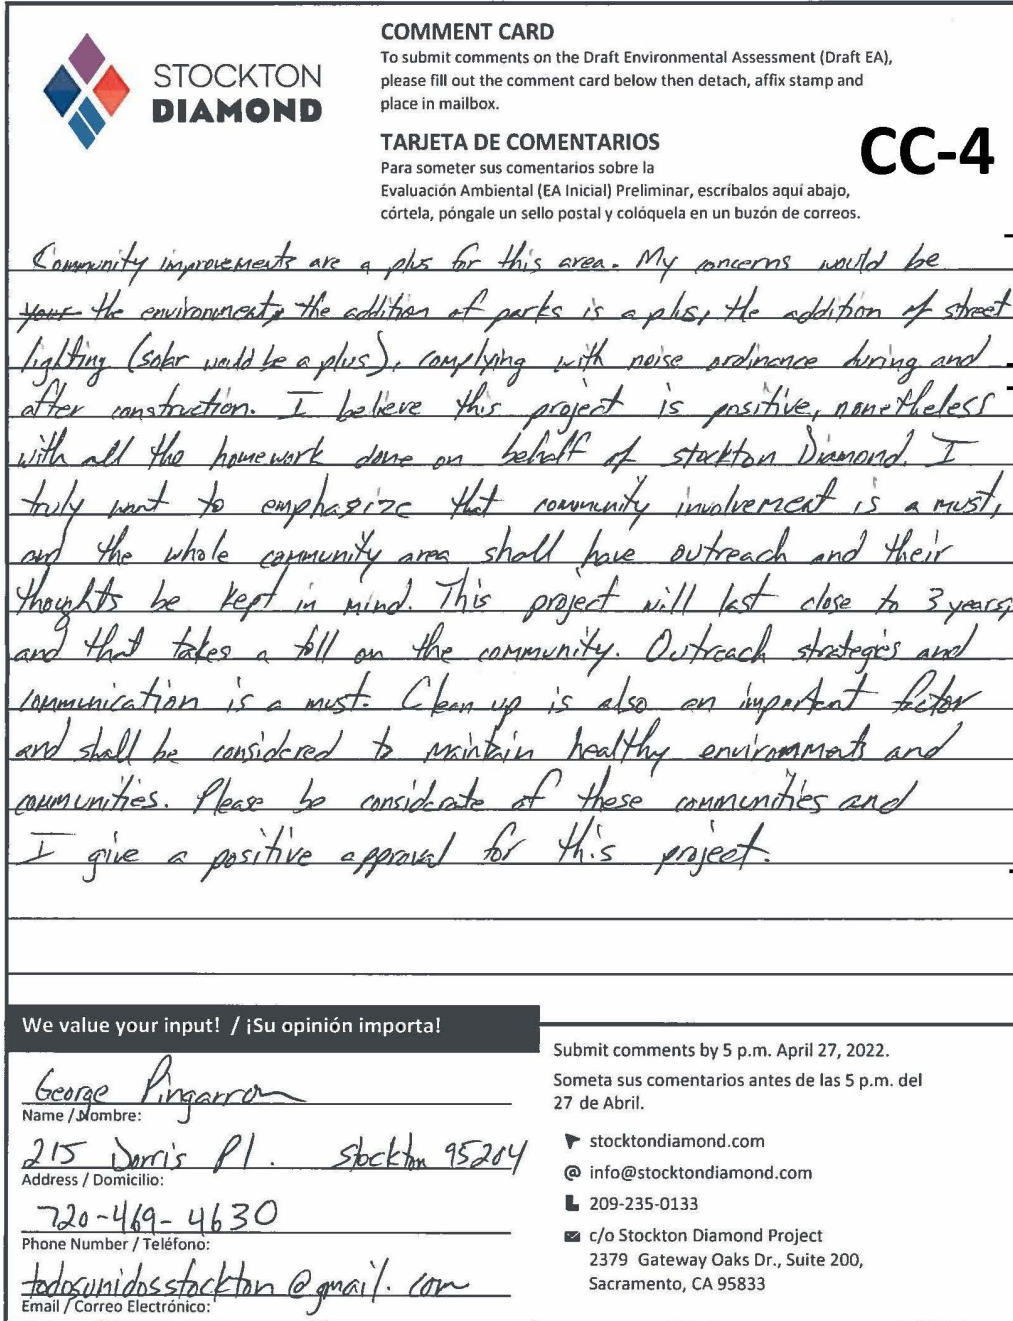 STOCKTON
DIAMOND
COMMENT CARD
To submit comments on the Draft Environmental Assessment (Draft EA),
please fill out the comment card below then detach, affix stamp and
place in mailbox.
TARJETA DE COMENTARIOS
Para someter sus comentarios sobre la
Evaluación Ambiental (EA Inicial) Preliminar, escríbalos aquí abajo,
córtela, póngale un sello postal y colóquela en un buzón de correos.
CC-4
Community improvements are a plus for this area. My concerns would be
your the environment, the addition of parks is a plus, the addition of street
lighting (solar would be a plus), complying with noise ordinance during and
after construction. I believe this project is positive, nonetheless
with all the homework done on behalf of stockton Diamond. I
truly want to emphasize that community involvement is a must,
and the whole community area shall have outreach and their
thoughts be kept in mind. This project will last close to 3 years,
and that takes a toll on the community. Outreach strategies and
communication is a must. Clean up is also an important factor
and shall be considered to maintain healthy environments and
communities. Please be considerate of these communities and
I give a positive approval for this project.
We value your input! / ¡Su opinión importa!
George Pingarron
Name / Nombre:
215 Dorris Pl. Stockton 95204
Address / Domicilio:
720-469-4630
Phone Number / Teléfono:
todosunidosstockton@gmail.com
Email / Correo Electrónico:
Submit comments by 5 p.m. April 27, 2022.
Someta sus comentarios antes de las 5 p.m. del
27 de Abril.
stocktondiamond.com
info@stocktondiamond.com
209-235-0133
c/o Stockton Diamond Project
2379 Gateway Oaks Dr., Suite 200,
Sacramento, CA 95833